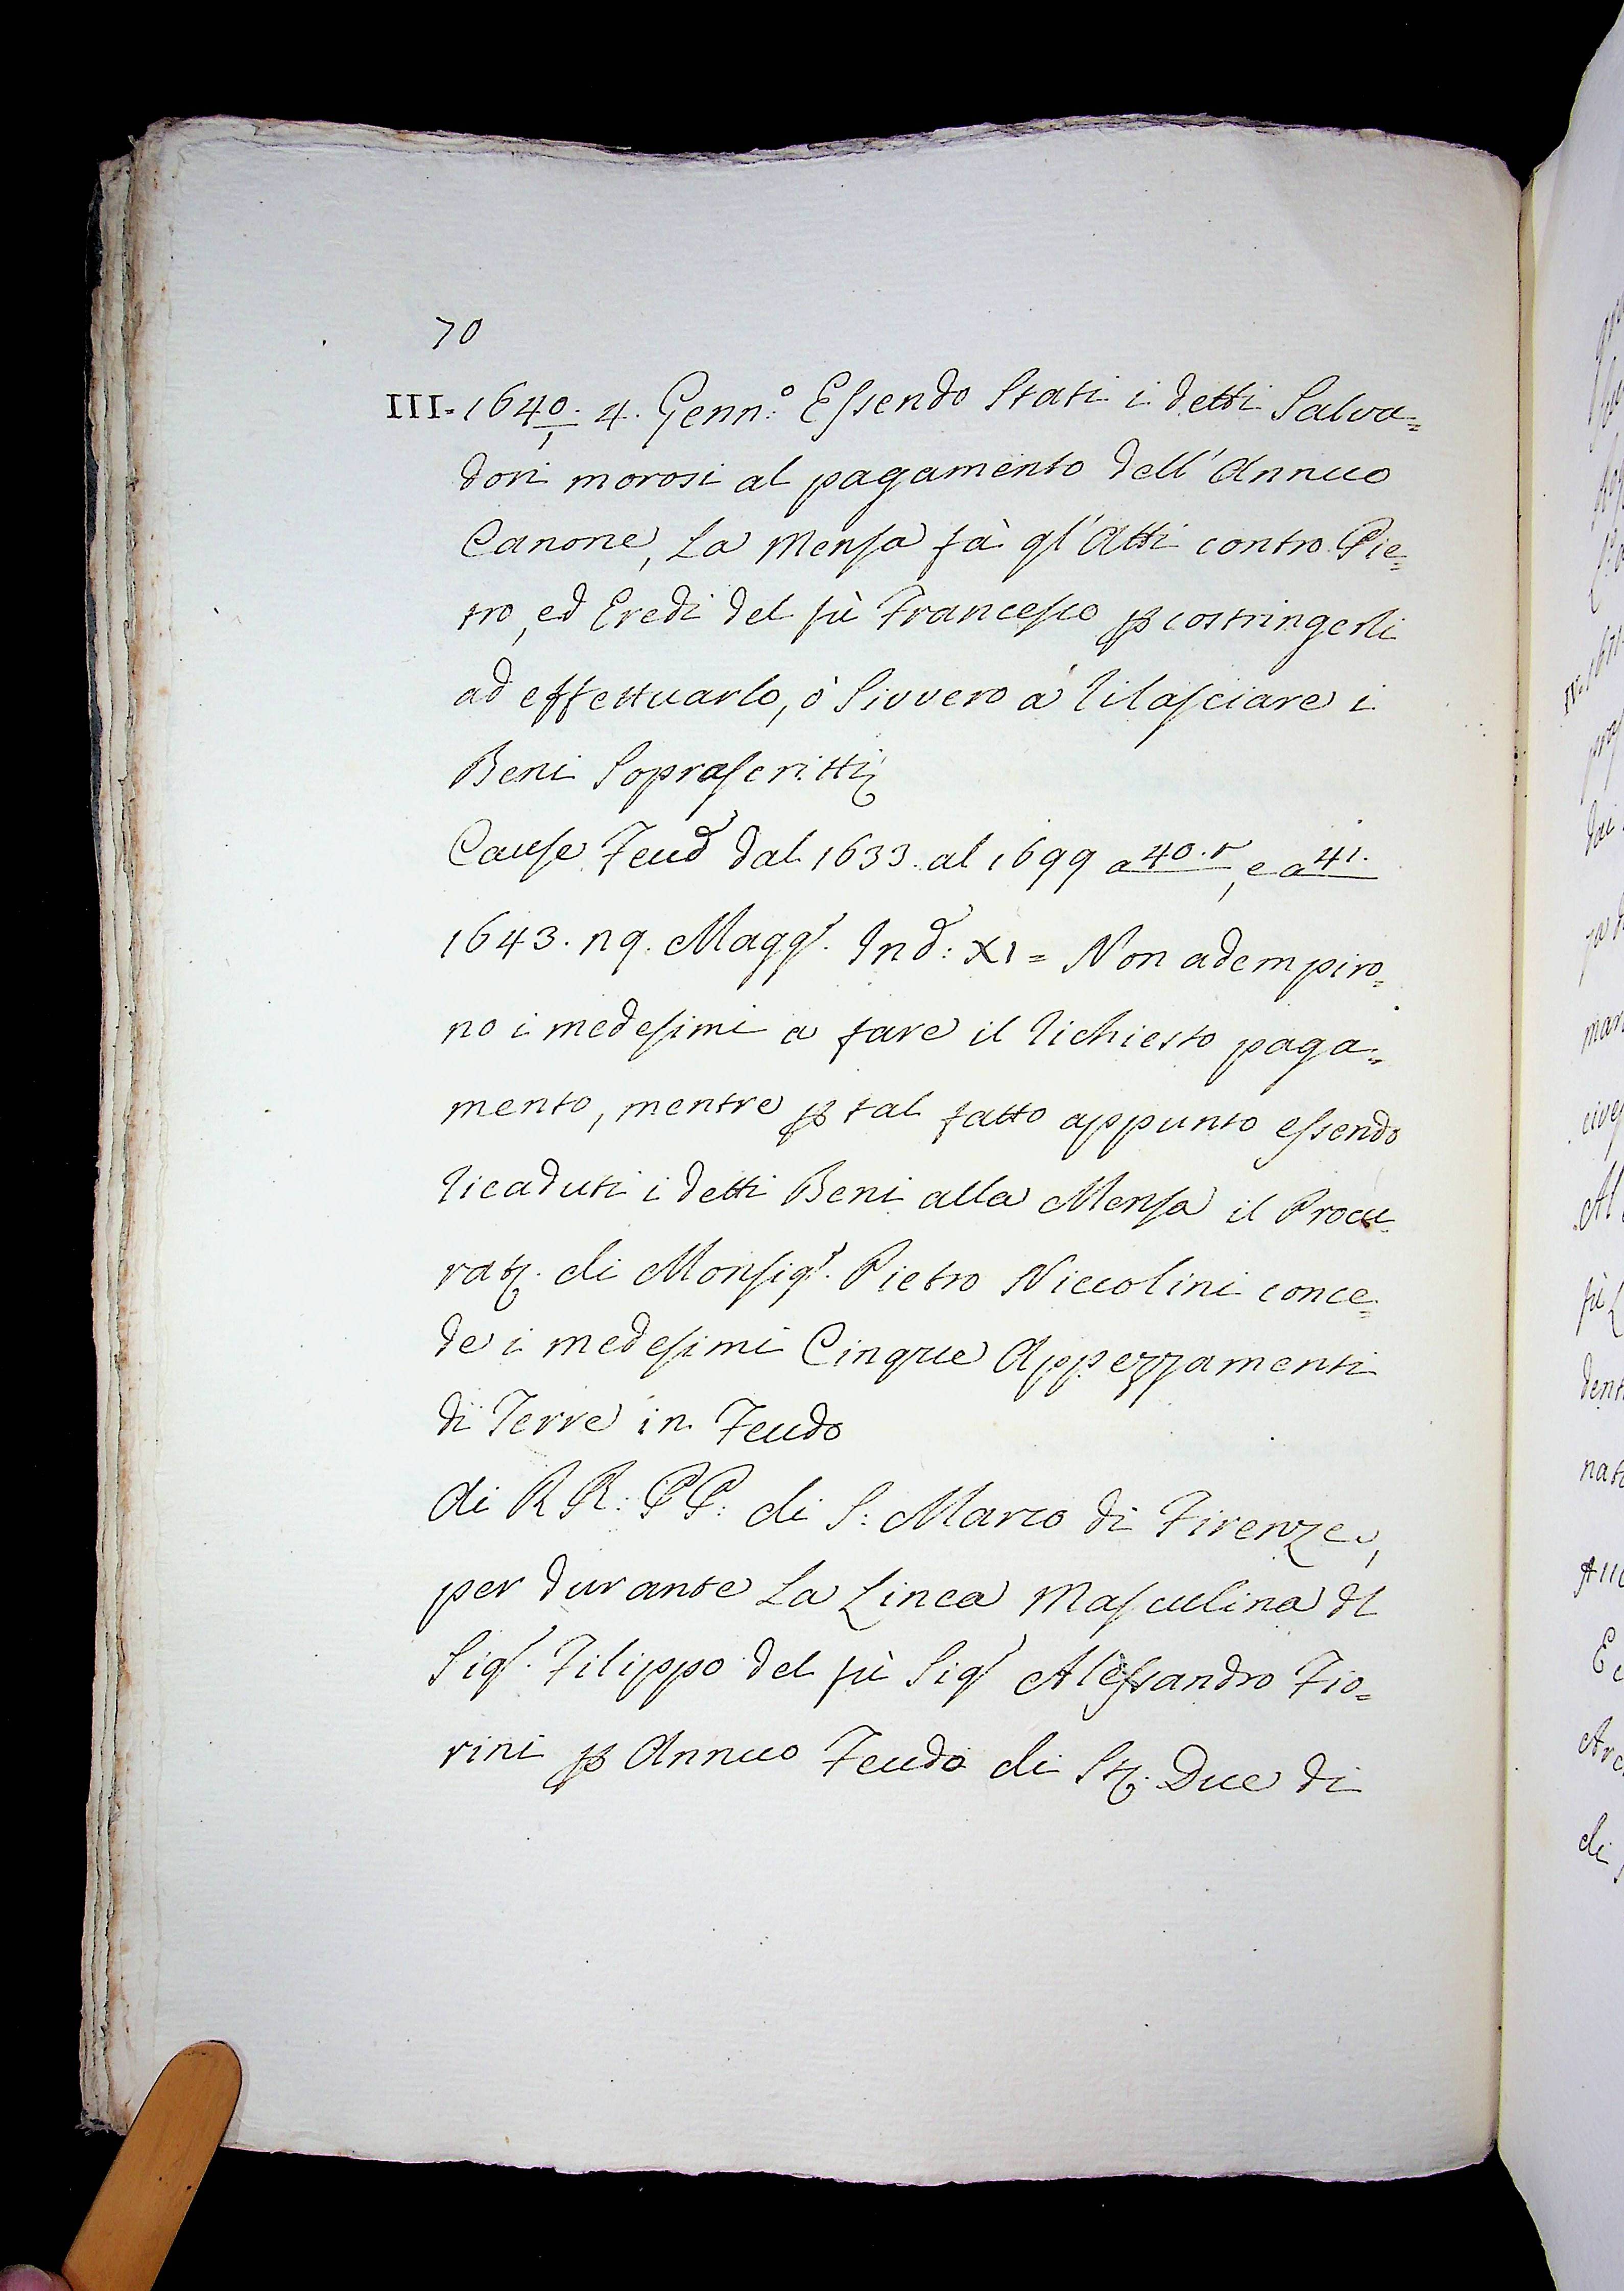 70
III. 1640/1. 4. Genn:º Essendo Stati i detti Salva=
dori morosi al pagamento dell' Annuo
Canone, La Mensa fà gl' Atti contro Pie=
tro, ed Eredi del fù Francesco ꝑ costringerli
ad effettuarlo, ò Sivvero à rilasciare i
Beni Soprascritti
Cause Feud dal 1633. al 1699 a 40. r, e a 41.
1643. 19. Maggº. Ind: XI = Non adempiro=
no i medesimi a fare il richiesto paga=
mento, mentre ꝑ tal fatto appunto essendo
ricaduti i detti Beni alla Mensa il Procu=
rat. di Monsigr. Pietro Niccolini conce=
de i medesimi Cinque Appezzamenti
di Terre in Feudo
Ai RR: PP: di S: Marco di Firenze,
per durante La Linea Masculina dl
Sigr. Filippo del fù Sigr Alessandro Fio=
rini ꝑ Annuo Feudo di St. Due di